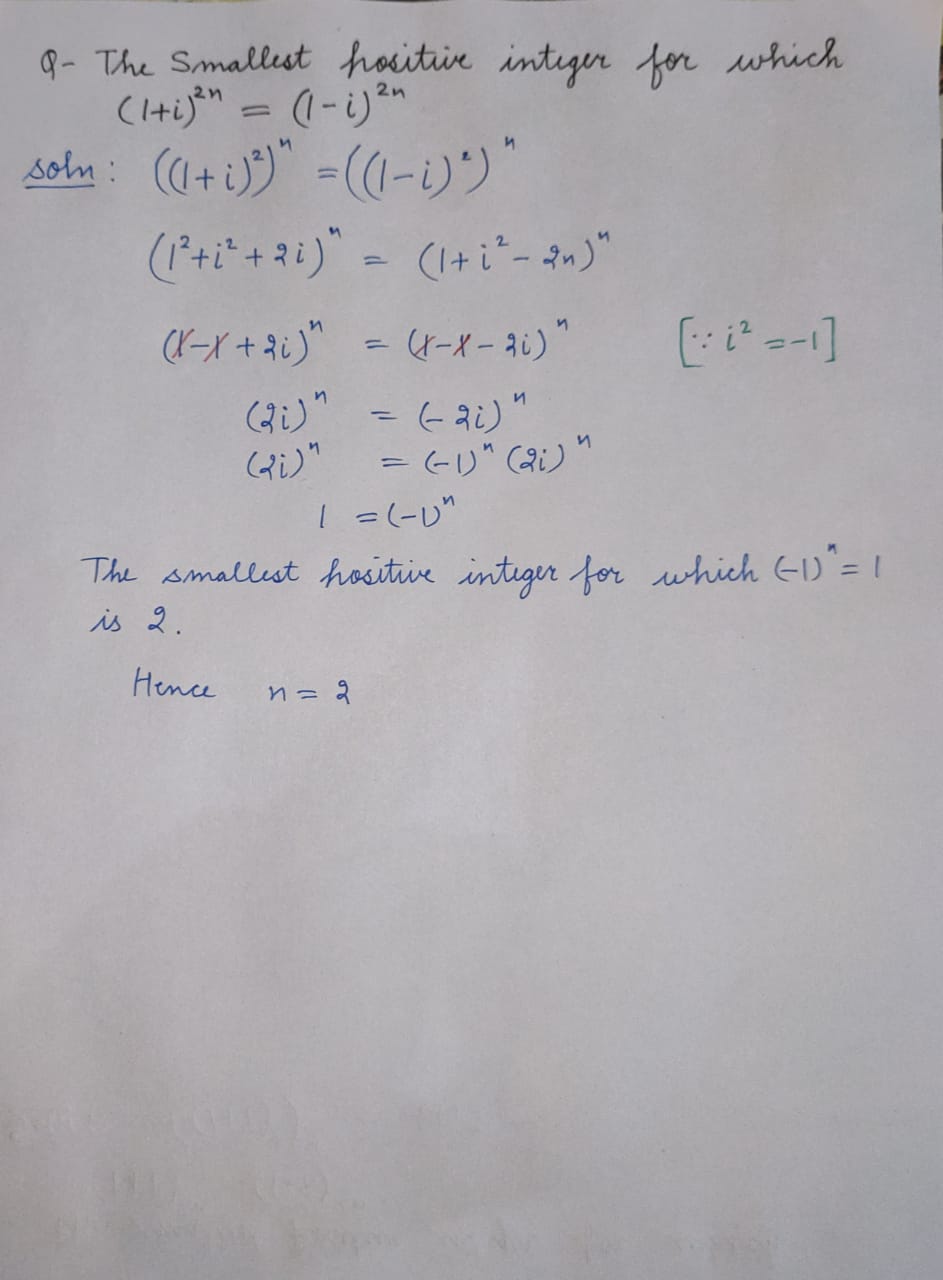 Q- The Smallest positive integer for which
(1+i)²ⁿ = (1-i)²ⁿ
soln : ((1+i)²)ⁿ = ((1-i)²)ⁿ
(1²+i²+2i)ⁿ = (1+i²-2n)ⁿ
(1-1+2i)ⁿ = (1-1-2i)ⁿ [∵ i² = -1]
(2i)ⁿ = (-2i)ⁿ
(2i)ⁿ = (-1)ⁿ (2i)ⁿ
1 = (-1)ⁿ
The smallest positive integer for which (-1)ⁿ = 1
is 2.
Hence n = 2